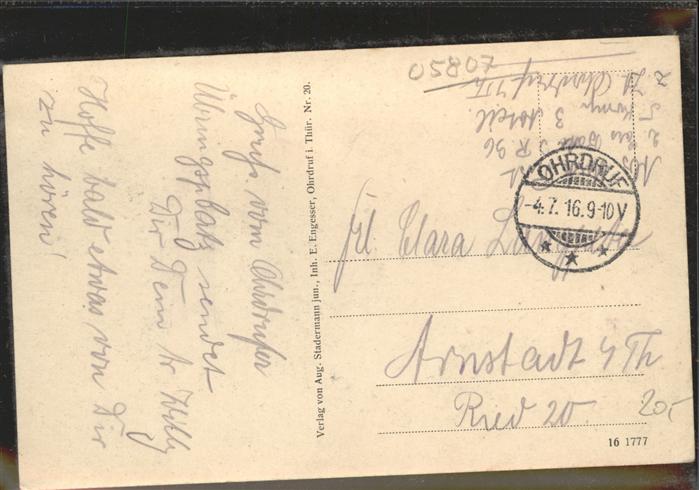 Gruß vom Ohrdrufer
Übungsplatz sendet
Dir Dein Willy
Hoffe bald etwas von Dir
zu hören!
Verlag von Aug. Stadermann jun., Inh. E. Engesser, Ohrdruf i. Thür. Nr. 20.
05807
3
R 96
OHRDRUF
-4.7.16.9-10V
Frl. Clara
Arnstadt i/Th
Ried 20
20,-
16 1777